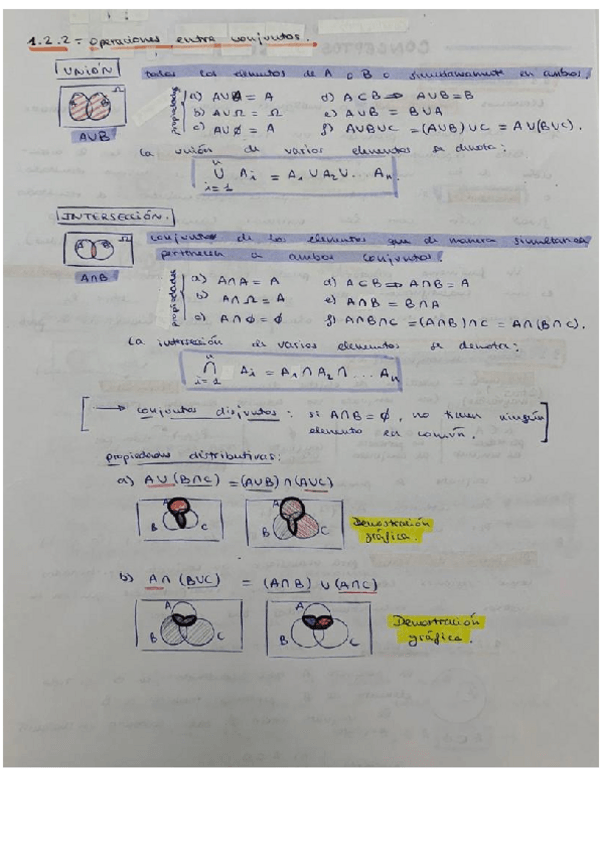 1.2.2 = Operaciones entre conjuntos.
UNIÓN
todos los elementos de A o B o simultáneamente en ambos.
A B Ω
A∪B
propiedades
a) A∪A = A d) A⊂B ⇒ A∪B = B
b) A∪Ω = Ω e) A∪B = B∪A
c) A∪∅ = A f) A∪B∪C = (A∪B)∪C = A∪(B∪C).
La unión de varios elementos se denota:
n
∪ Ai = A1∪A2∪...An.
i=1
INTERSECCIÓN.
A B Ω
A∩B
conjunto de los elementos que de manera simultánea
pertenecen a ambos conjuntos.
propiedades
a) A∩A = A d) A⊂B ⇒ A∩B = A
b) A∩Ω = A e) A∩B = B∩A
c) A∩∅ = ∅ f) A∩B∩C = (A∩B)∩C = A∩(B∩C).
La intersección de varios elementos se denota:
n
∩ Ai = A1∩A2∩...An
i=1
[→ conjuntos disjuntos: si A∩B = ∅, no tienen ningún
elemento en común.]
propiedades distributivas:
a) A∪(B∩C) = (A∪B)∩(A∪C)
A B C
A B C
Demostración
gráfica.
b) A∩(B∪C) = (A∩B)∪(A∩C)
A B C
A B C
Demostración
gráfica.